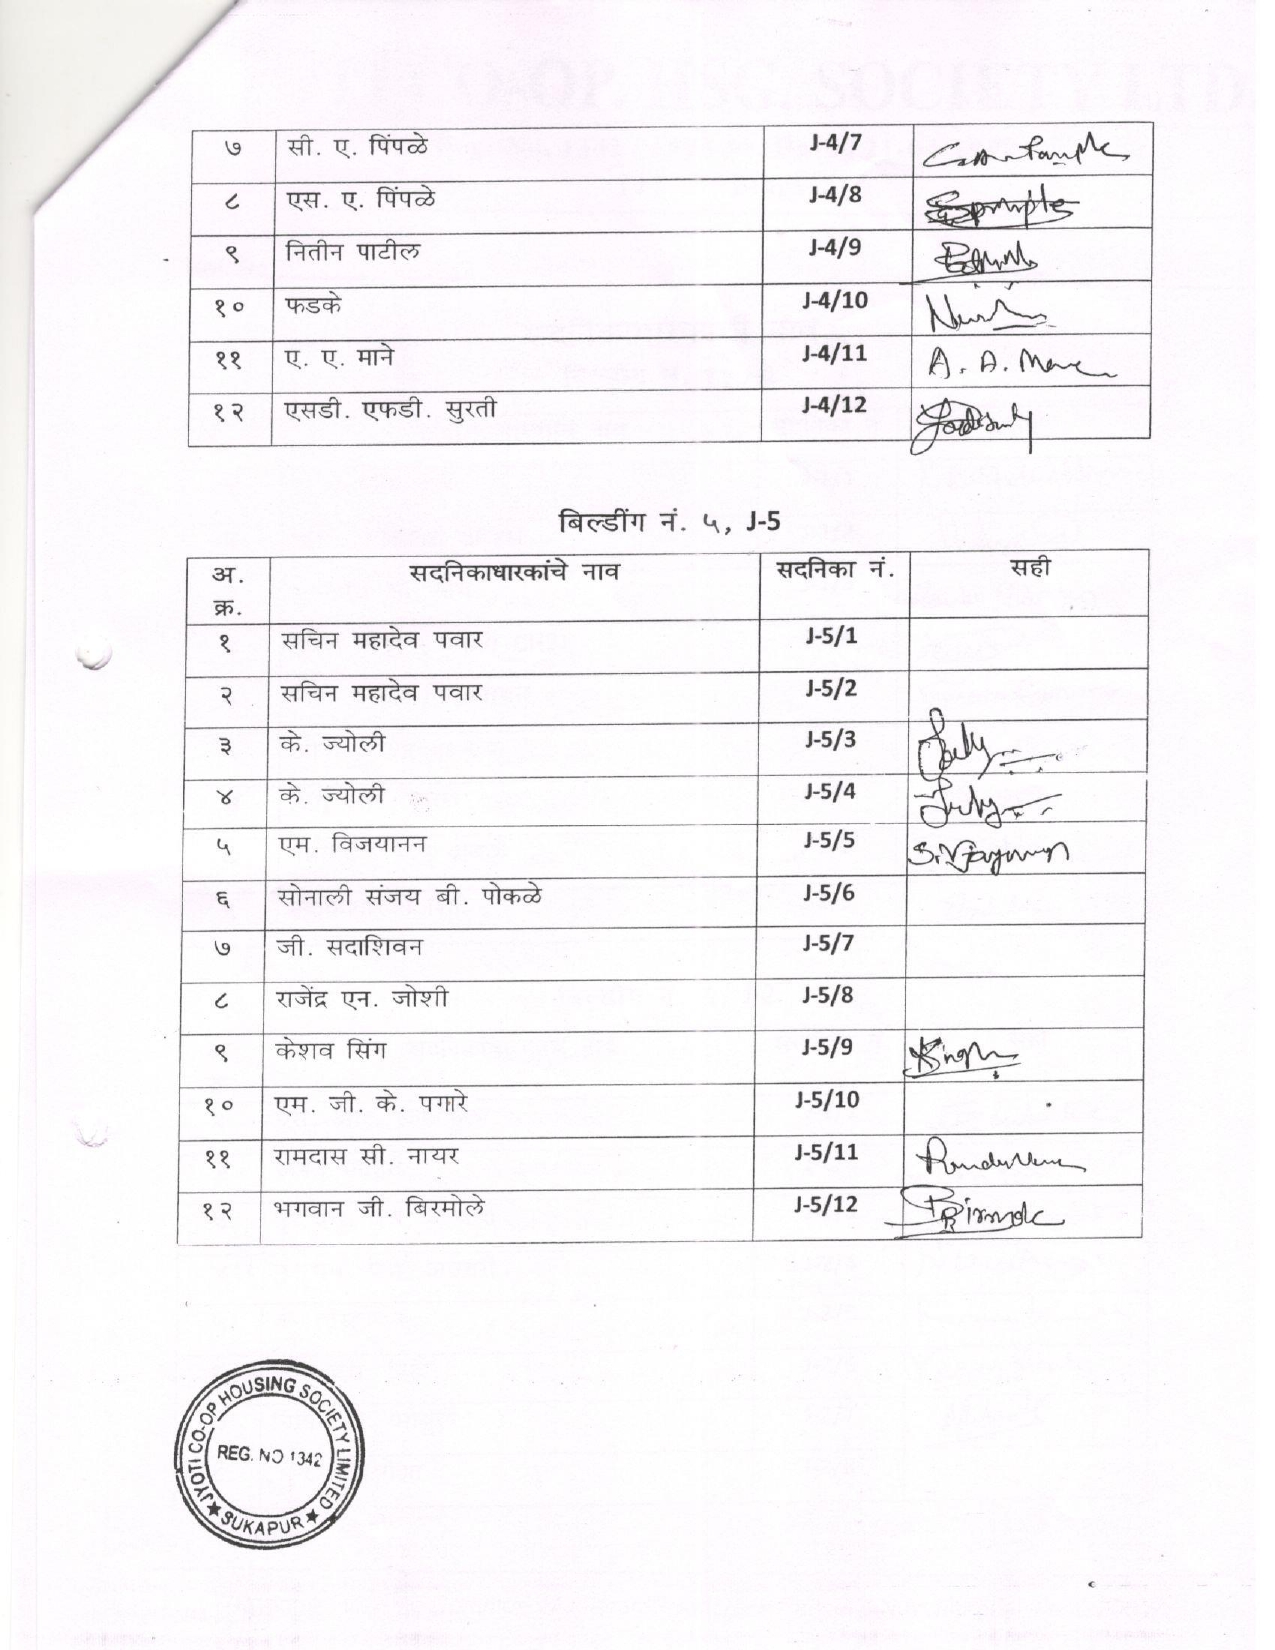 ७ सी. ए. पिंपळे J-4/7
८ एस. ए. पिंपळे J-4/8
९ नितीन पाटील J-4/9
१० फडके J-4/10
११ ए. ए. माने J-4/11 A. A. Mane
१२ एसडी. एफडी. सुरती J-4/12
बिल्डींग नं. ५, J-5
अ. सदनिकाधारकांचे नाव सदनिका नं. सही
क्र.
१ सचिन महादेव पवार J-5/1
२ सचिन महादेव पवार J-5/2
३ के. ज्योली J-5/3
४ के. ज्योली J-5/4
५ एम. विजयानन J-5/5
६ सोनाली संजय बी. पोकळे J-5/6
७ जी. सदाशिवन J-5/7
८ राजेंद्र एन. जोशी J-5/8
९ केशव सिंग J-5/9
१० एम. जी. के. पगारे J-5/10
११ रामदास सी. नायर J-5/11
१२ भगवान जी. बिरमोले J-5/12
JYOTI CO-OP HOUSING SOCIETY LIMITED
REG. NO 1342
★ SUKAPUR ★